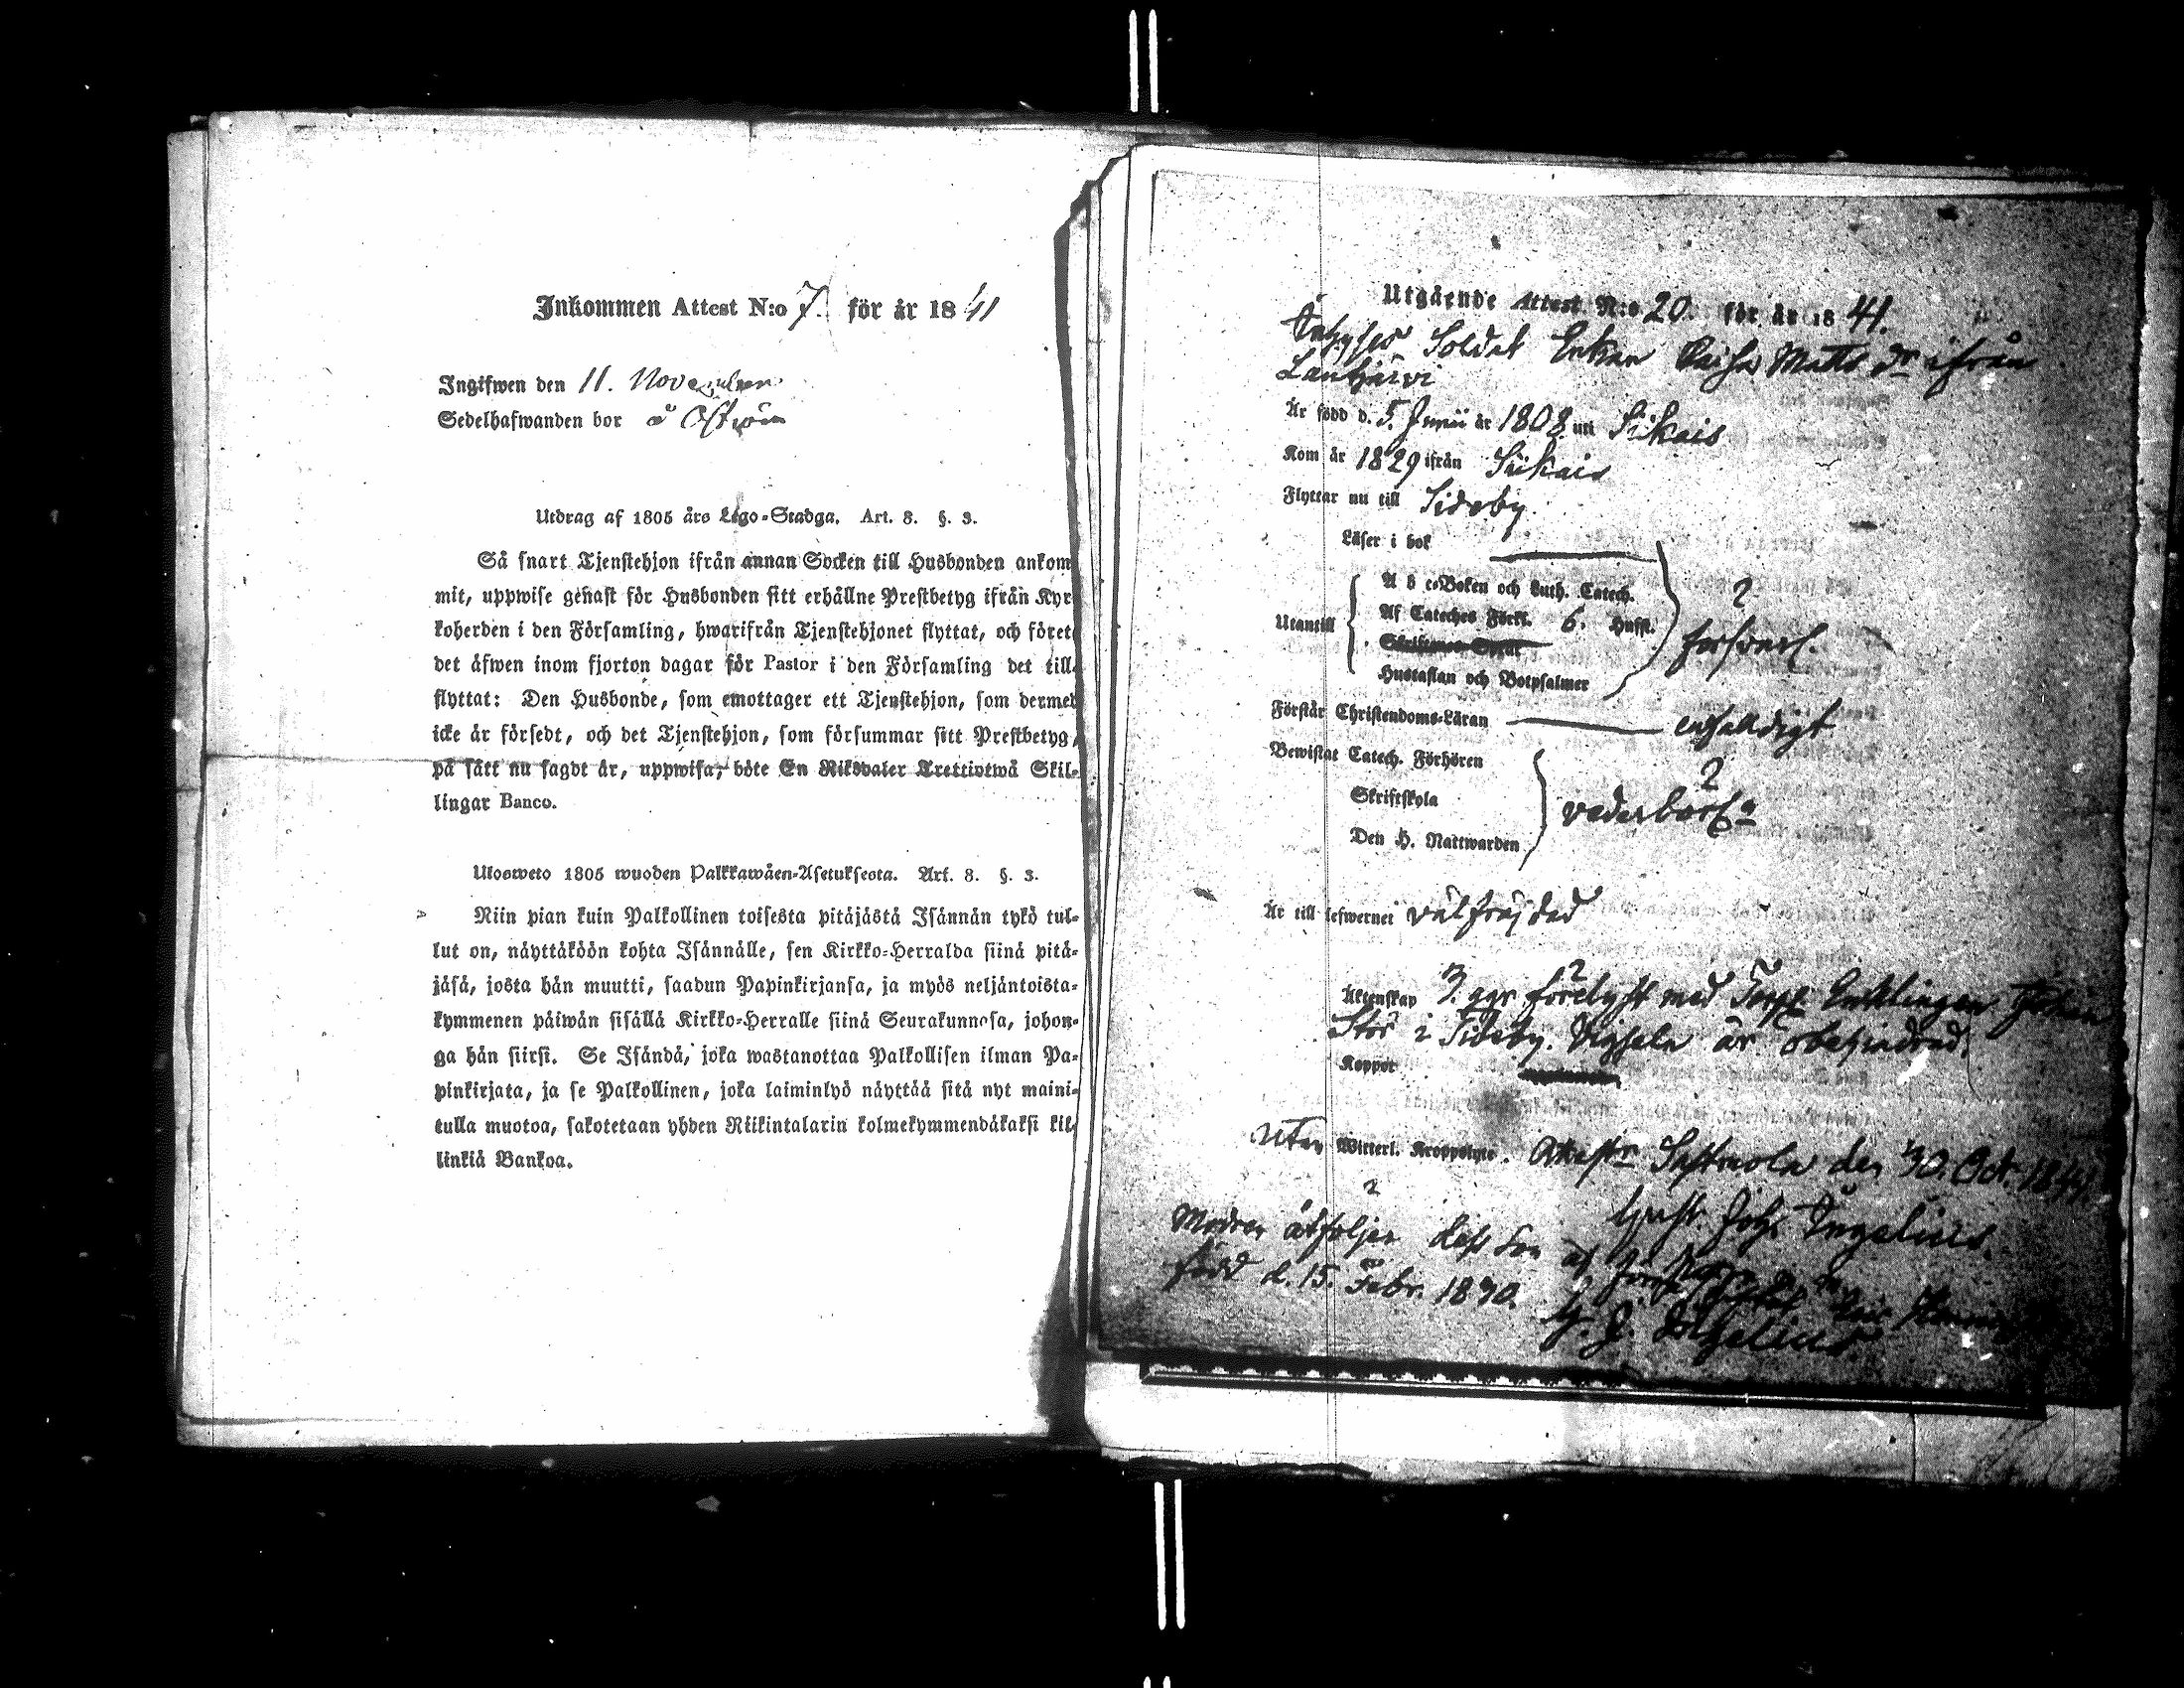 Inkommen Attest N:o 7. för år 1841
Ingifwen den 11. November
Sedelhafwanden bor å
Utdrag af 1805 års Lego-Stadga. Art. 8. §. 3.
Så snart Tjenstehjon ifrån annan Socken till Husbonden ankom-
mit, uppwise genast för Husbonden sitt erhållne Prestbetyg ifrån Kyr-
koherden i den Församling, hwarifrån Tjenstehjonet flyttat, och förete
det äfwen inom fjorton dagar för Pastor i den Församling det till-
flyttat: Den Husbonde, som emottager ett Tjenstehjon, som dermed
icke är försedt, och det Tjenstehjon, som försummar sitt Prestbetyg,
på sätt nu sagdt är, uppwisa, böte En Riksdaler Trettiotwå Skil-
lingar Banco.
Ulosweto 1805 wuoden Palkkawäen-Asetuksesta. Art. 8. §. 3.
Niin pian kuin Palkollinen toisesta pitäjästä Isännän tykö tul-
lut on, näyttäköön kohta Isännälle, sen Kirkko-Herralda siinä pitä-
jäsä, josta hän muutti, saadun Papinkirjansa, ja myös neljäntoista-
kymmenen päiwän sisällä Kirkko-Herralle siinä Seurakunnasa, johon-
ga hän siirsi. Se Isändä, joka wastanottaa Palkollisen ilman Pa-
pinkirjata, ja se Palkollinen, joka laiminlyö näyttää sitä nyt maini-
tulla muotoa, sakotetaan yhden Riikintalarin kolmekymmendäkaksi kil-
linkiä Bankoa.
Utgående Attest N:o 20. för år 1841.
Soldat Enkan Caisa Matts dr ifrån
Lautjärvi
Är född d. 5. Junii år 1808 uti Siikais
Kom år 1829 ifrån Siikais
Flyttar nu till Sideby.
Läser i bok
A b c-Boken och Luth. Catech.
Utantill Af Cateches Förkl. 6. Hufst. försvarl.
Hustaflan och Botpsalmer
Förstår Christendoms-Läran enfalldigt
Bewistat Catech. Förhören
Skriftskola vederbörl:n
Den H. Nattwarden
Är till lefwernet välfräjdad
Äktenskap 3. ggr förelyst med Torp. Enklingen Johan
Stor i Sideby. Vigseln är obehindrad.
Koppor
Utan Witterl. Kroppslyte. Sastmola den 30. Oct. 1841.
Gust. Joh. Ingelius.
Modren åtföljer dess Son
född d. 15. Febr. 1830.
G. J. Ingelius